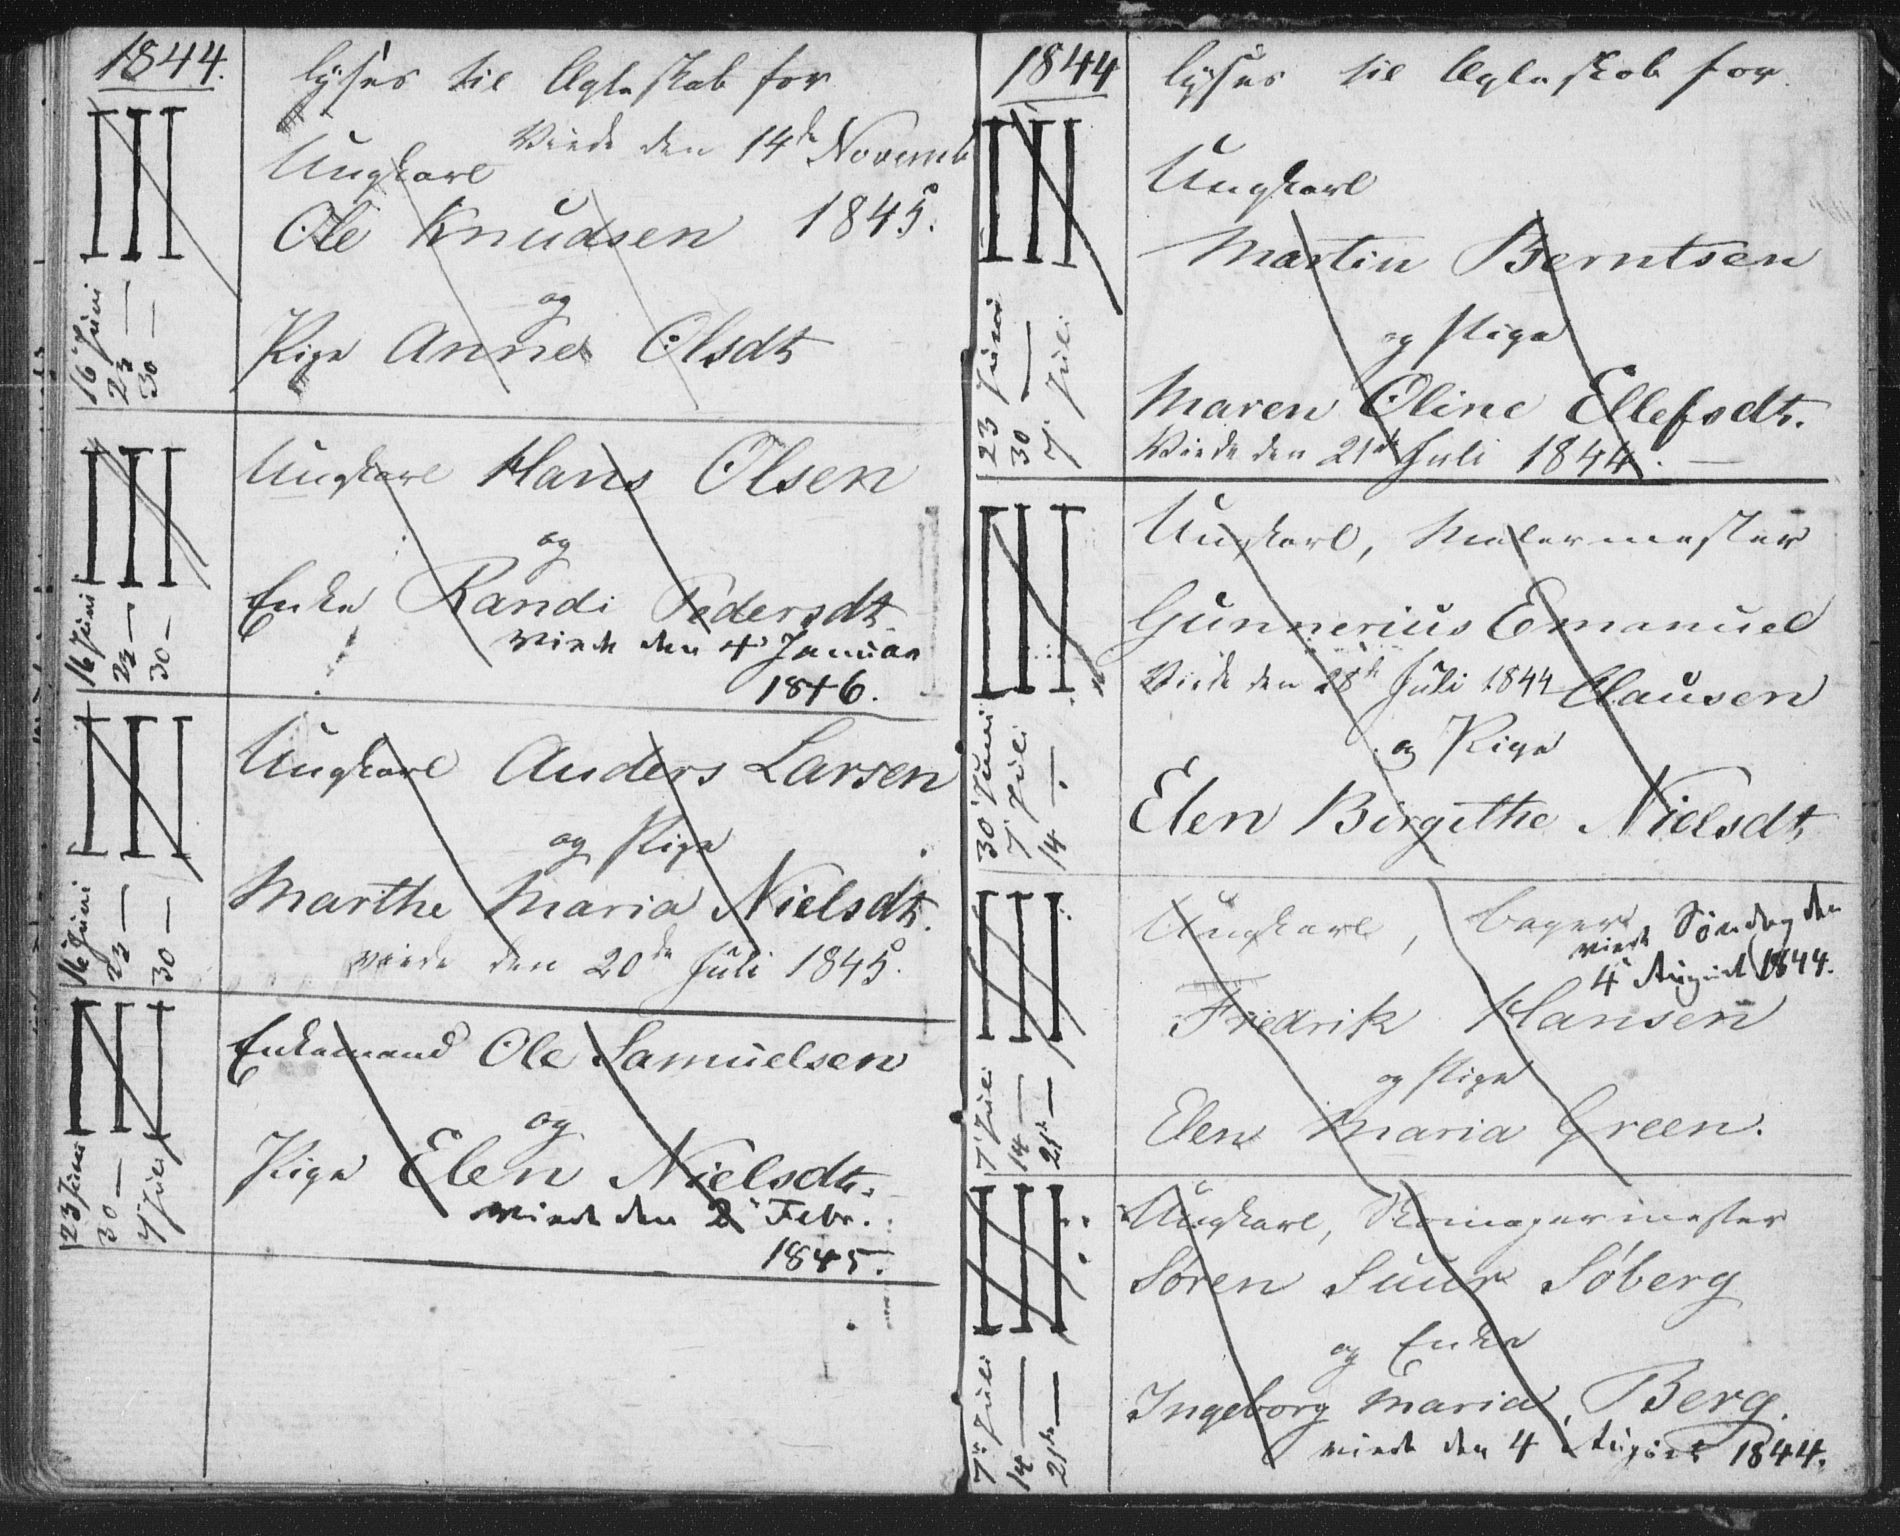 1844.
lyses til Ægteskab for
Viede den 14de Novemb
Ungkarl
Ole Knudsen 1845.
og
Pige Anne Olsdt
16 Juni
23 —
30 —
Ungkarl Hans Olsen
og
Enke Randi Pedersdt
viede den 4' Januar
1846.
16 Juni
23 —
30 —
Ungkarl Anders Larsen
og Pige
Marthe Maria Nielsdt.
viede den 20de Juli 1845.
16 Juni
23 —
30 —
Enkemand Ole Samuelsen
og
Pige Elen Nielsdt.
viede den 2' Febr.
1845.
23 Juni
30 —
7 Juli
1844
lyses til Ægteskab for
Ungkarl
Martin Berntsen
og Pige
Maren Oline Ellefsdt.
Viede den 21de Juli 1844. —
23 Juni
30 —
7' Juli
Ungkarl, Malermester
Gunnerius Emanuel
Viede den 28de Juli 1844 Clausen
og Pige
Elen Birgithe Nielsdt
30' Juni
7' Juli
14 —
Ungkarl, Bager
viede Søndag den
4' August 1844.
Fredrik Hansen
og Pige
Elen Maria Green.
7' Juli
14 —
21de —
Ungkarl, Skomagermester
Sören Suur Söberg
og Enke
Ingeborg Maria Berg.
viede den 4 August 1844.
7de Juli
14 —
21de —